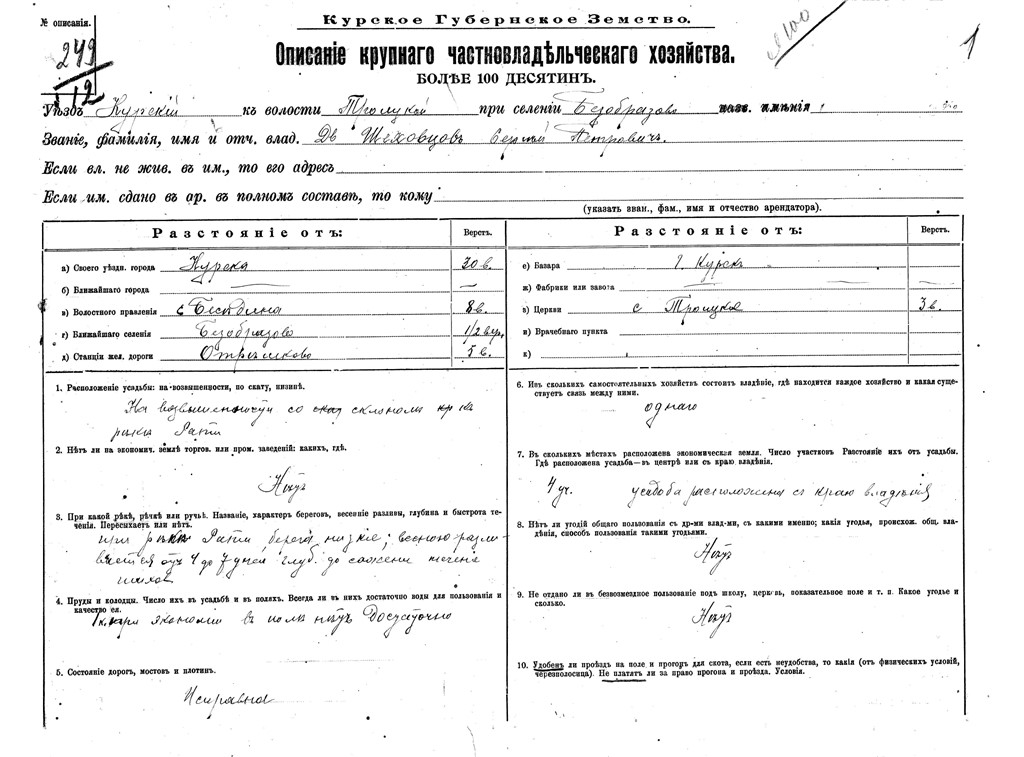 Курское Губернское Земство.
№ описанія.
249
112
1
Описаніе крупнаго частновладѣльческаго хозяйства.
БОЛѢЕ 100 ДЕСЯТИНЪ.
Уѣздъ Курскій къ волости Троицкой при селеніи Безобразово назв. имѣнія
Званіе, фамилія, имя и отч. влад. Дв Шеховцовъ Сергѣй Петровичъ.
Если вл. не жив. въ им., то его адресъ
Если им. сдано въ ар. въ полномъ составѣ, то кому
(указать зван., фам., имя и отчество арендатора).
Разстояніе отъ: Верстъ.
а) Своего уѣздн. города Курска 30 в.
б) Ближайшаго города —
в) Волостного правленія с Беседина 8 в.
г) Ближайшаго селенія Безобразово 1/2 вер,
д) Станціи жел. дороги Отрѣшково 5 в.
Разстояніе отъ: Верстъ.
е) Базара г. Курскъ
ж) Фабрики или завота —
з) Церкви с Троицкое 3 в.
и) Врачебнаго пункта
к)
1. Расположеніе усадьбы: на-возвышенности, по скату, низинѣ.
На возвышенности со склономъ къ
рѣки Рати
2. Нѣтъ ли на экономич. землѣ торгов. или пром. заведеній: какихъ, гдѣ.
Нѣтъ
3. При какой рѣкѣ, рѣчкѣ или ручьѣ. Названіе, характеръ береговъ, весенніе разливы, глубина и быстрота те-
ченія. Пересыхаетъ или нѣтъ.
при рѣкѣ Рати, берега низкіе; весною разли-
вается отъ 4 до 7 дней глуб. до сажени теченіе
тихое
4. Пруды и колодцы. Число ихъ въ усадьбѣ и въ поляхъ. Всегда ли въ нихъ достаточно воды для пользованія и
качество ея.
1 к. при экономіи въ полѣ нѣтъ Достаточно
5. Состояніе дорогъ, мостовъ и плотинъ.
Исправна
6. Изъ сколькихъ самостоятельныхъ хозяйствъ состоитъ владѣніе, гдѣ находится каждое хозяйство и какая суще-
ствуетъ связь между ними.
однаго
7. Въ сколькихъ мѣстахъ расположена экономическая земля. Число участковъ Разстояніе ихъ отъ усадьбы.
Гдѣ расположена усадьба—въ центрѣ или съ краю владѣнія.
4 уч. усадьба расположена съ краю владѣнія
8. Нѣтъ ли угодій общаго пользованія съ др-ми влад-ми, съ какими именно; какія угодья, происхож. общ. вла-
дѣнія, способъ пользованія такими угодьями.
Нѣтъ
9. Не отдано ли въ безвозмездное пользованіе подъ школу, церковь, показательное поле и т. п. Какое угодье и
сколько.
Нѣтъ
10. Удобенъ ли проѣздъ на поле и прогонъ для скота, если есть неудобства, то какія (отъ физическихъ условій,
черезполосица). Не платятъ ли за право прогона и проѣзда. Условія.